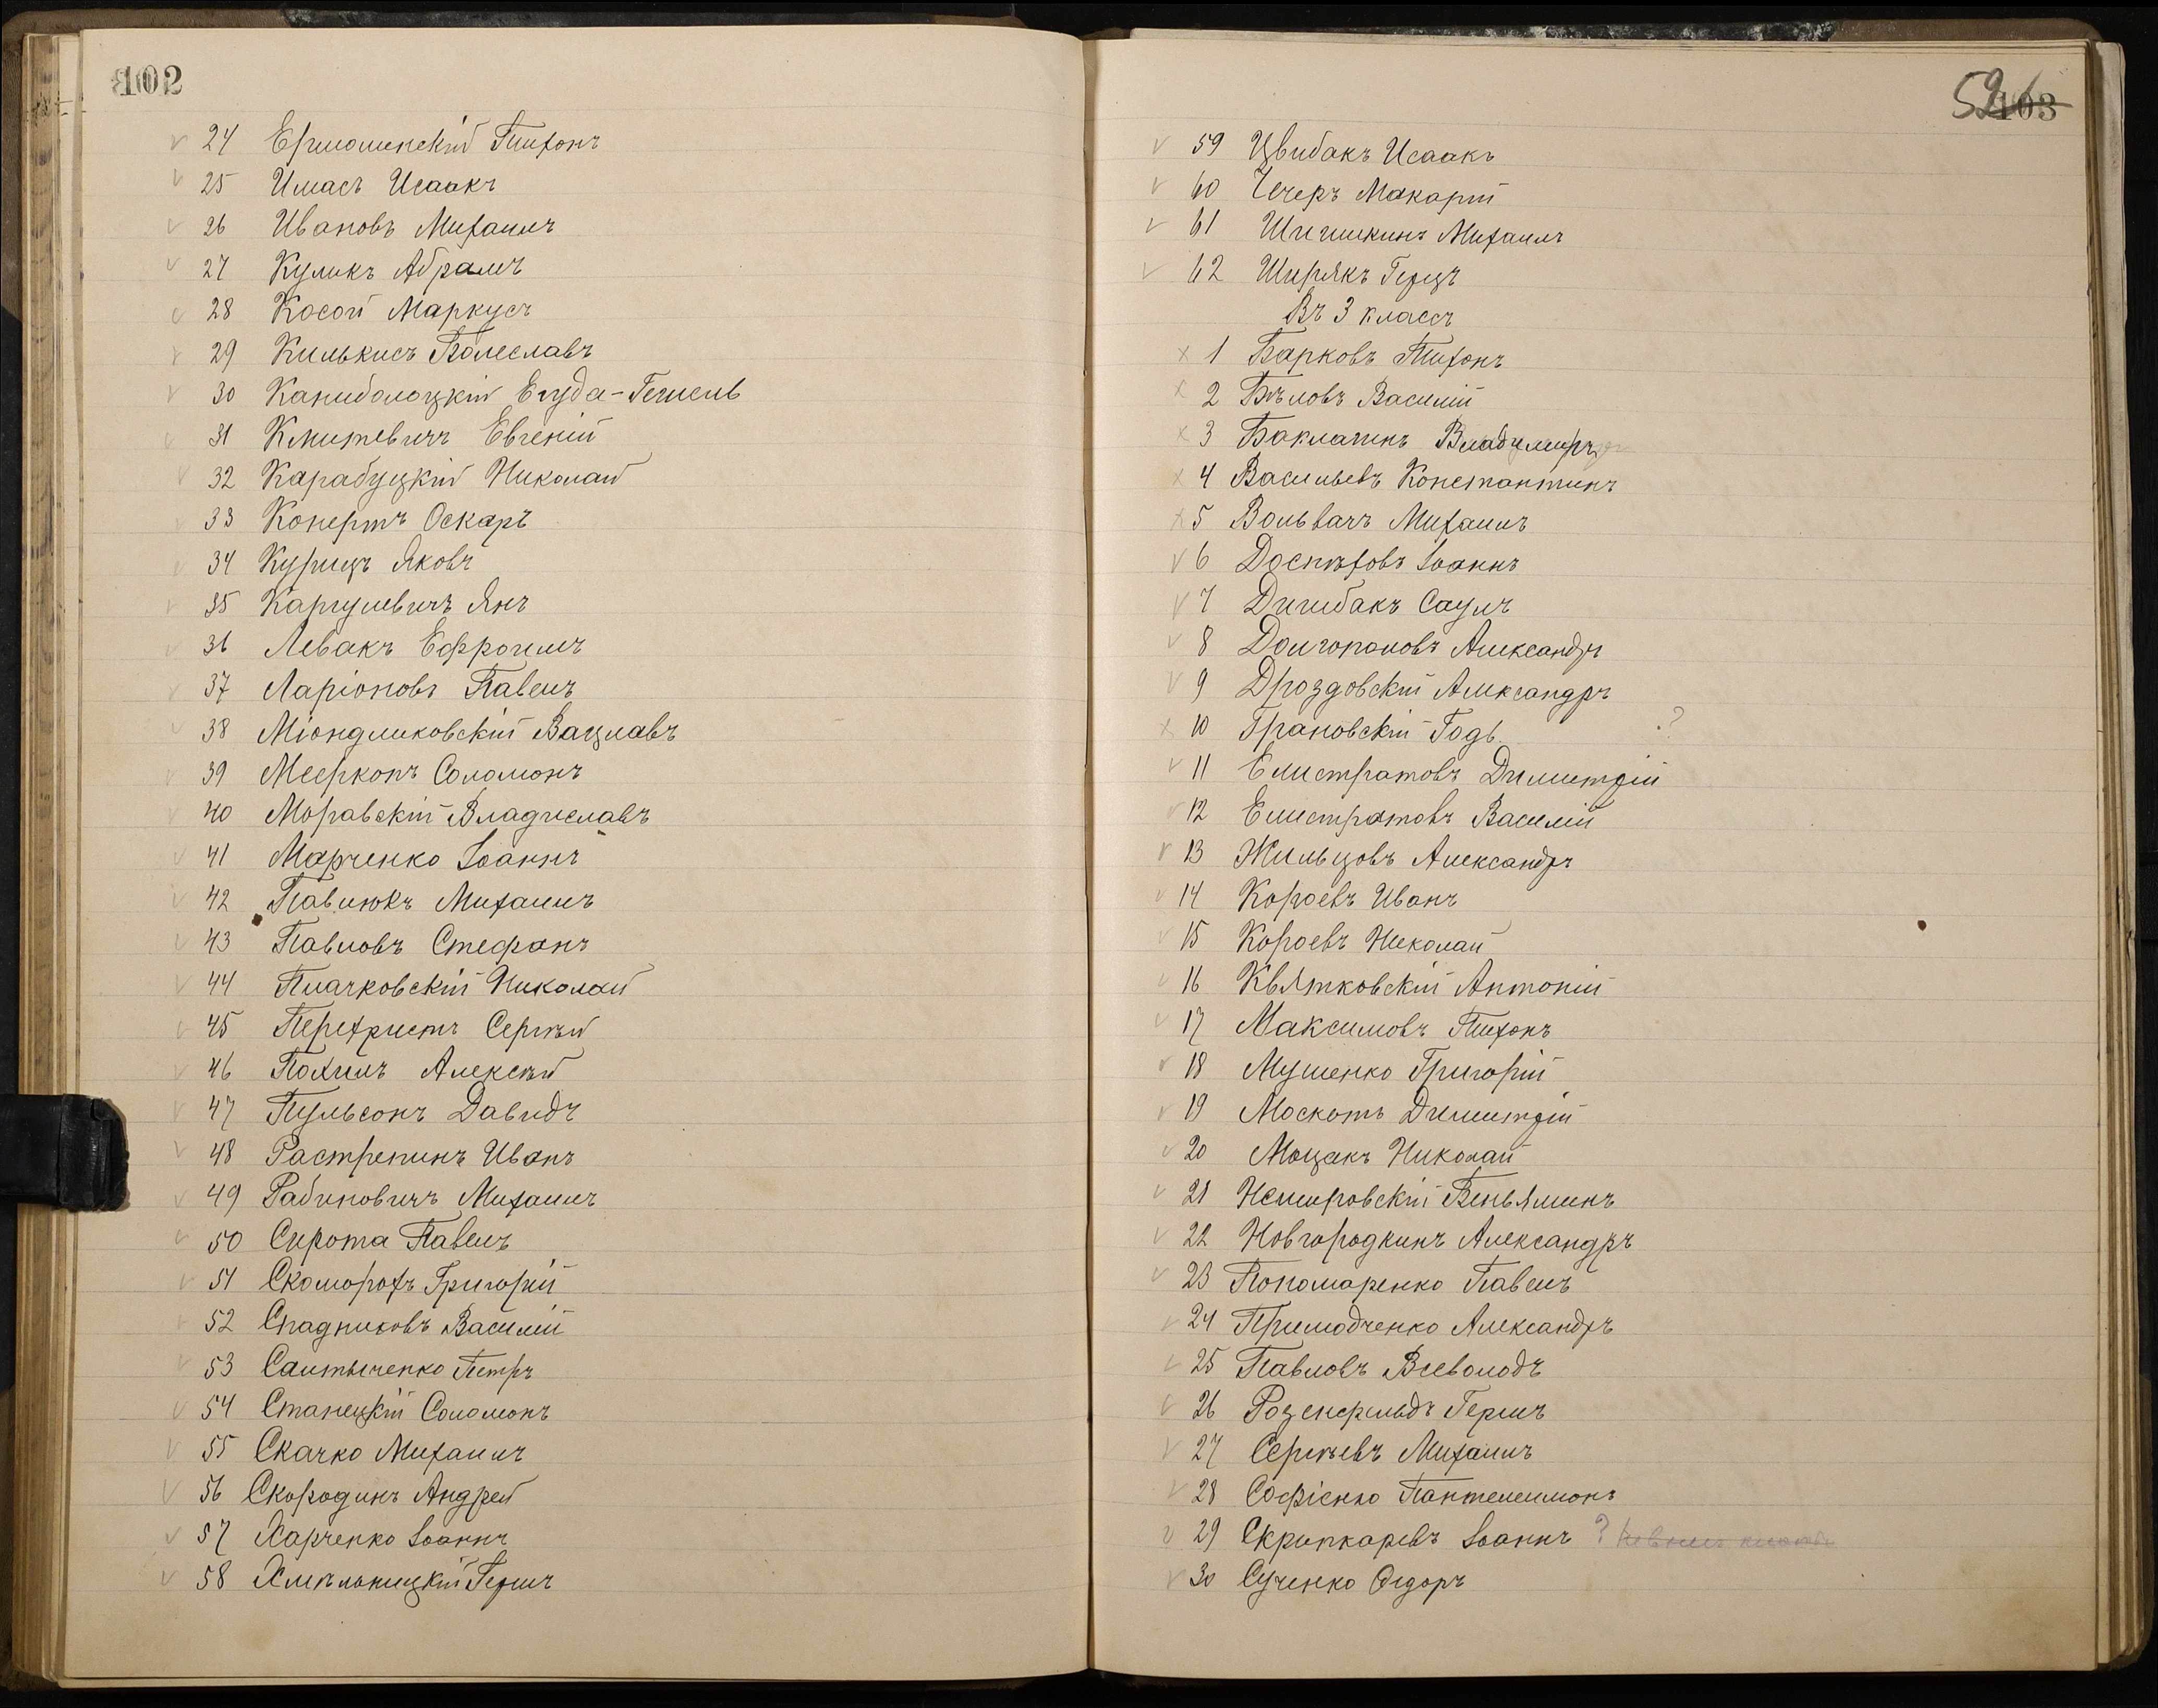 102
24 Ермолинскій Тихонъ
25 Имасъ Исаакъ
26 Ивановъ Михаилъ
27 Куликъ Абрамъ
28 Косой Маркусъ
29 Килькисъ Болеславъ
30 Каниболоцкій Егуда-Гешель
31 Кмитевичъ Евгеній
32 Карабуцкій Николай
33 Конертъ Оскаръ
34 Курицъ Яковъ
35 Каргулевичъ Янъ
36 Левакъ Ефроимъ
37 Ларіоновъ Павелъ
38 Міондликовскій Вацлавъ
39 Мееркопъ Соломонъ
40 Моравскій Владиславъ
41 Марченко Іоаннъ
42 Павлюкъ Михаилъ
43 Павловъ Стефанъ
44 Плачковскій Николай
45 Перехристъ Сергѣй
46 Похилъ Алексѣй
47 Пульсонъ Давидъ
48 Растрепинъ Иванъ
49 Рабиновичъ Михаилъ
50 Сирота Павелъ
51 Скоморохъ Григорій
52 Спадниковъ Василій
53 Салтыченко Петръ
54 Станецкій Соломонъ
55 Скачко Михаилъ
56 Скородинъ Андрей
57 Харченко Іоаннъ
58 Хмѣльницкій Гершъ
52 103
59 Цвибакъ Исаакъ
60 Чечеръ Макарій
61 Шишкинъ Михаилъ
62 Ширякъ Герцъ
Въ 3 классъ
1 Барковъ Тихонъ
2 Бѣловъ Василій
3 Баклагинъ Владимиръ
4 Васильевъ Константинъ
5 Вольвачъ Михаилъ
6 Доспѣховъ Іоаннъ
7 Дигибакъ Саулъ
8 Долгополовъ Александръ
9 Дроздовскій Александръ
10 Грановскій Годь ?
11 Елистратовъ Димитрій
12 Елистратовъ Василій
13 Жильцовъ Александръ
14 Короевъ Иванъ
15 Короевъ Николай
16 Квятковскій Антоній
17 Максимовъ Тихонъ
18 Мушенко Григорій
19 Москотъ Димитрій
20 Моцакъ Николай
21 Немировскій Веньяминъ
22 Новгородкинъ Александръ
23 Пономаренко Павелъ
24 Примодченко Александръ
25 Павловъ Всеволодъ
26 Розенфельдъ Гершъ
27 Сергѣевъ Михаилъ
28 Софіенко Пантелеимонъ
29 Скрипкаревъ Іоаннъ ?
30 Сученко Ѳедоръ